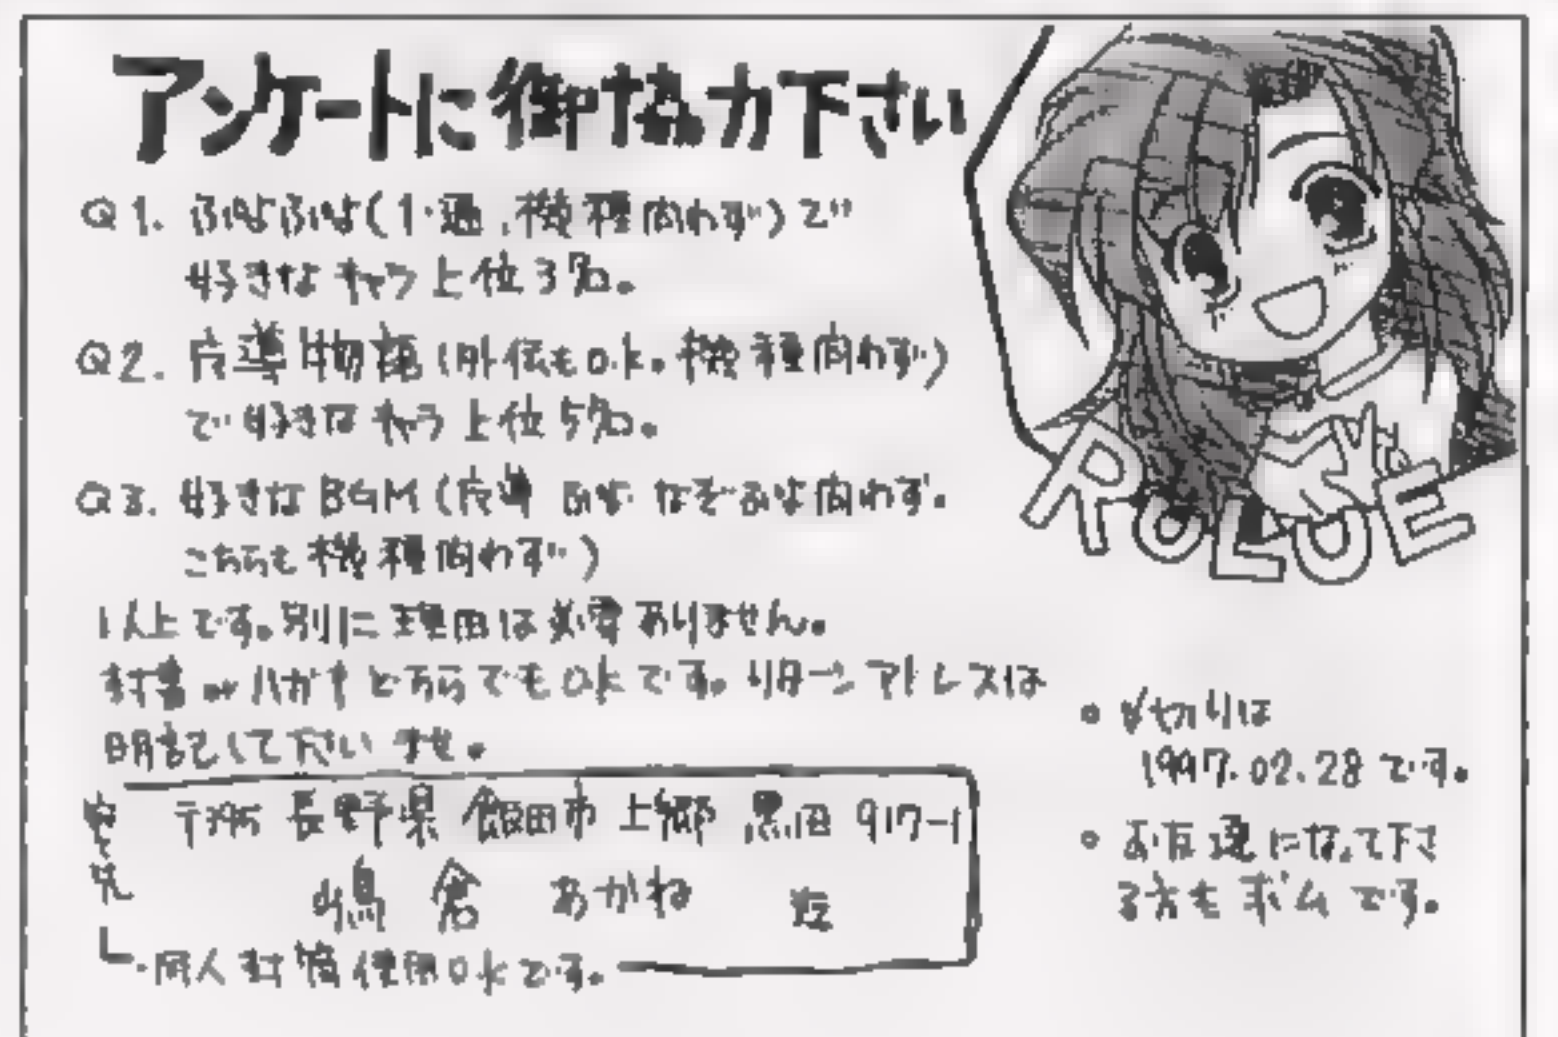 アンケートに御協力下さい
Q1. ぷよぷよ(1・通、機種問わず)で
好きなキャラ上位3名。
Q2. 魔導物語(外伝もOK。機種問わず)
で好きなキャラ上位5名。
Q3. 好きなBGM(魔導 ぷよ なぞぷよ問わず。
こちらも機種問わず)
以上です。別に理由は必要ありません。
封書orハガキどちらでもOKです。リターンアドレスは
明記して下さいませ。
宛て先
長野県 飯田市 上郷 黒田 917-1
嶋倉 あかね 迄
・同人封筒使用OKです。
POLOVE
○〆切りは
1997.02.28です。
○お友達になって下さ
る方もボムです。